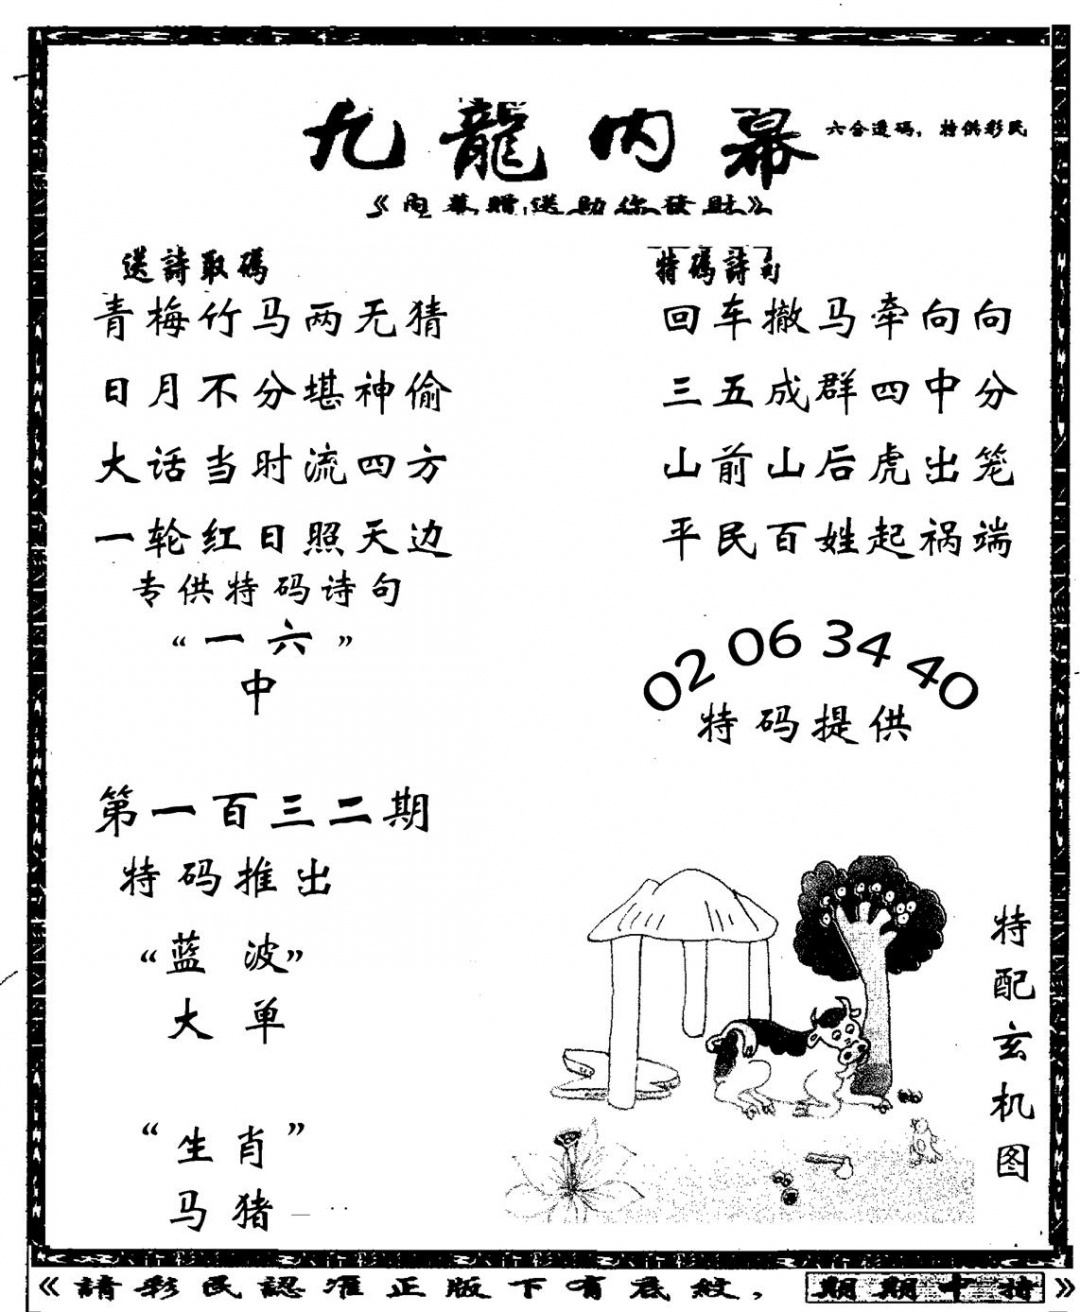 九龍内幕
六合透码，特供彩民
《内幕贈送助你發財》
送詩取碼
青梅竹马两无猜
日月不分堪神偷
大话当时流四方
一轮红日照天边
专供特码诗句
“一六”
中
特碼詩句
回车撤马牵向向
三五成群四中分
山前山后虎出笼
平民百姓起祸端
02 06 34 40
特码提供
第一百三二期
特码推出
“蓝波”
大单
“生肖”
马猪
特配玄机图
《請彩民認准正版下有底紋，期期中特》